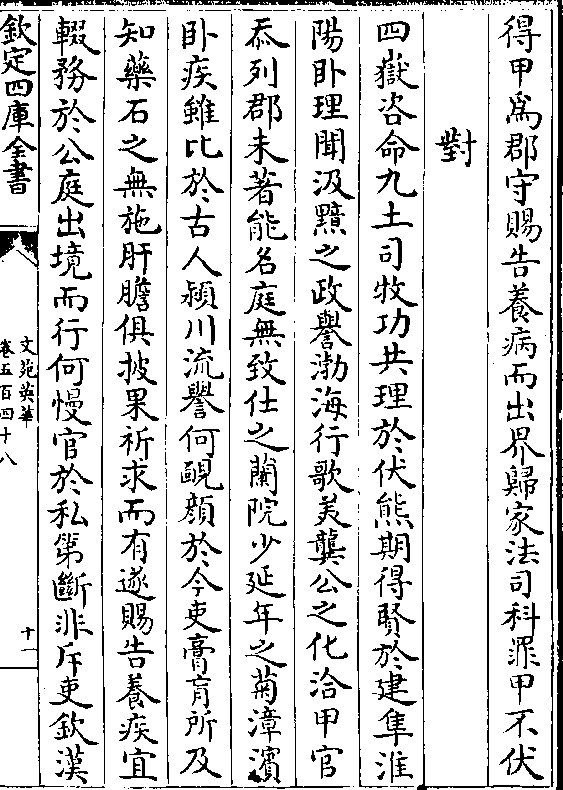 得甲爲郡守賜告養病而出界歸家法司科罪甲不伏
對
四嶽咨命九土司牧功共理於伏熊期得賢於建隼淮
陽卧理聞汲黯之政譽渤海行歌美龔公之化洽甲官
忝列郡未著能名庭無致仕之蘭院少延年之菊漳濱
卧疾雖比於古人潁川流譽何靦顔於今吏膏肓所及
知藥石之無施肝膽俱披果祈求而有遂賜告養疾宜
輟務於公庭出境而行何慢官於私第斷非斥吏欽漢
欽定四庫全書
文苑英華
卷五百四十八
十一